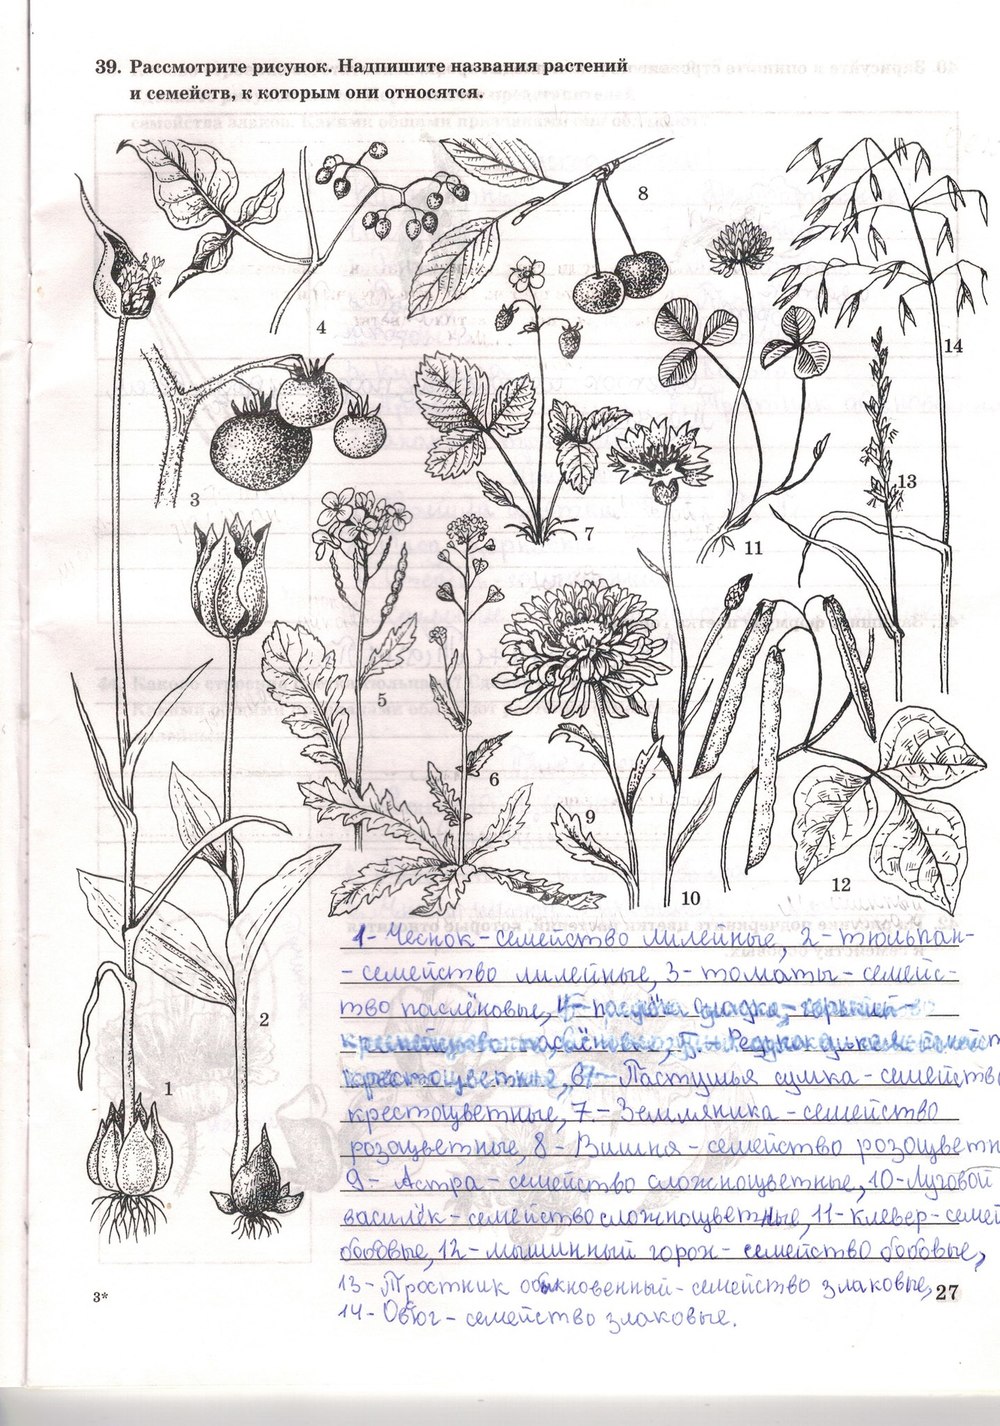 39. Рассмотрите рисунок. Надпишите названия растений
и семейств, к которым они относятся.
8
4
14
3
13
7
11
5
6
9
10
12
2
1
1- Чеснок - семейство лилейные, 2- тюльпан-
- семейство лилейные, 3- томаты - семейс-
тво паслёновые, 4-
паслёновые, 5 - Редька дикая
крестоцветные, 6 - Пастушья сумка - семейство
крестоцветные, 7.- Земляника - семейство
розоцветные, 8 - Вишня - семейство розоцветн
9- Астра - семейство сложноцветные, 10-Луговой
василёк - семейство сложноцветные, 11- клевер-семей
бобовые, 12- мышинный горох- семейство бобовые,
13- Тростник обыкновенный- семейство злаковые,
14- Овюг - семейство злаковые.
3*
27